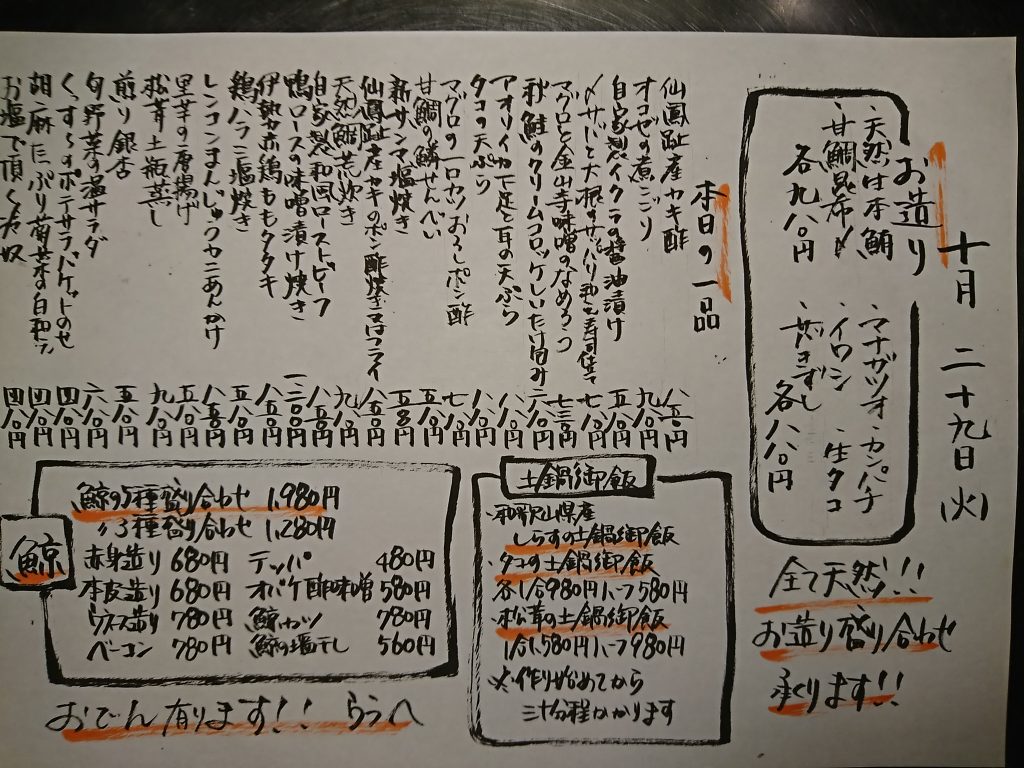 十月二十九日(火)
お造り
・天然生本鮪
・甘鯛昆布〆
各九八〇円
・マナガツオ・カンパチ
・イワシ ・生タコ
・〆さば
各八八〇円
全て天然!!
お造り盛り合わせ
承ります!!
本日の一品
仙鳳趾産カキ酢 八八〇円
オコゼの煮こごり 九八〇円
自家製イクラの醤油漬け
〆サバと大根のサッパリ和え寿司仕立て 七八〇円
マグロと金山寺味噌のなめろう 七三〇円
秋鮭のクリームコロッケしいたけ肉み
アオリイカ下足と耳の天ぷら 八八〇円
タコの天ぷら 八〇〇円
マグロの一口カツおろしポン酢 七八〇円
甘鯛の鱗せんべい 五八〇円
新サンマ塩焼き
仙鳳趾産カキのポン酢焼き又はフライ 八五〇円
天然鮪荒炊き 九八〇円
自家製和風ローストビーフ 八五〇円
鴨ロースの味噌漬け焼き 一三〇〇円
伊勢赤鶏ももタタキ 八五〇円
鶏ハラミ塩焼き 五八〇円
レンコンまんじゅうカニあんかけ 八五〇円
里芋の唐揚げ 五八〇円
松茸土瓶蒸し 九八〇円
煎り銀杏 五八〇円
旬野菜の温サラダ 六八〇円
くんすーのポテサラバケットのせ 四八〇円
胡麻たっぷり菊菜の白和え 四八〇円
お塩で頂く冷奴 四八〇円
土鍋御飯
・和歌山県産
しらすの土鍋御飯
・タコの土鍋御飯
各1合980円ハーフ580円
・松茸の土鍋御飯
1合1,580円ハーフ980円
※作り始めてから
三十分程かかります
鯨
鯨の5種盛り合わせ 1,980円
〃3種盛り合わせ 1,280円
赤身造り 680円 テッパ 480円
本皮造り 680円 オバケ酢味噌 580円
ウネス造り 780円 鯨カツ 780円
ベーコン 780円 鯨の塩干し 560円
おでん有ります!! うらへ